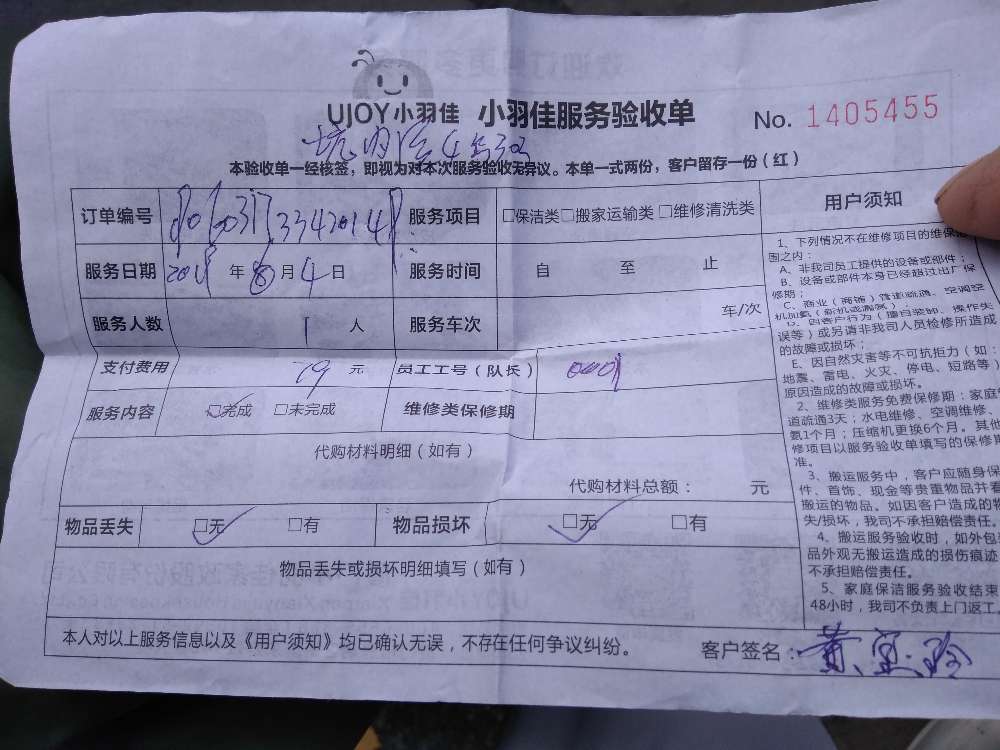 UJOY小羽佳 小羽佳服务验收单 No. 1405455
本验收单一经核签，即视为对本次服务验收无异议。本单一式两份，客户留存一份（红）
订单编号 服务项目 □保洁类□搬家运输类□维修清洗类 用户须知
服务日期 年 8 月 4 日 服务时间 自 至 止
服务人数 1 人 服务车次 车/次
支付费用 79 元 员工工号（队长）
服务内容 □完成 □未完成 维修类保修期
代购材料明细（如有）
代购材料总额： 元
物品丢失 □无 □有 物品损坏 □无 □有
物品丢失或损坏明细填写（如有）
本人对以上服务信息以及《用户须知》均已确认无误，不存在任何争议纠纷。 客户签名：黄
1、下列情况不在维修项目的维保范
围之内：
A、非我司员工提供的设备或部件；
B、设备或部件本身已经超过出厂保
修期；
C、商业（商铺）管道疏通、空调空
机加氨（新机或漏氨）
D、因客户行为（擅自装卸、操作失
误等）或另请非我司人员检修所造成
的故障或损坏；
E、因自然灾害等不可抗拒力（如：
地震、雷电、火灾、停电、短路等）
原因造成的故障或损坏。
2、维修类服务免费保修期：家庭
道疏通3天；水电维修、空调维修、
氨1个月；压缩机更换6个月。其他
修项目以服务验收单填写的保修期
准。
3、搬运服务中，客户应随身保
件、首饰、现金等贵重物品并看
搬运的物品。如因客户造成的物
失/损坏，我司不承担赔偿责任。
4、搬运服务验收时，如外包
品外观无搬运造成的损伤痕迹
不承担赔偿责任。
5、家庭保洁服务验收结束
48小时，我司不负责上门返工